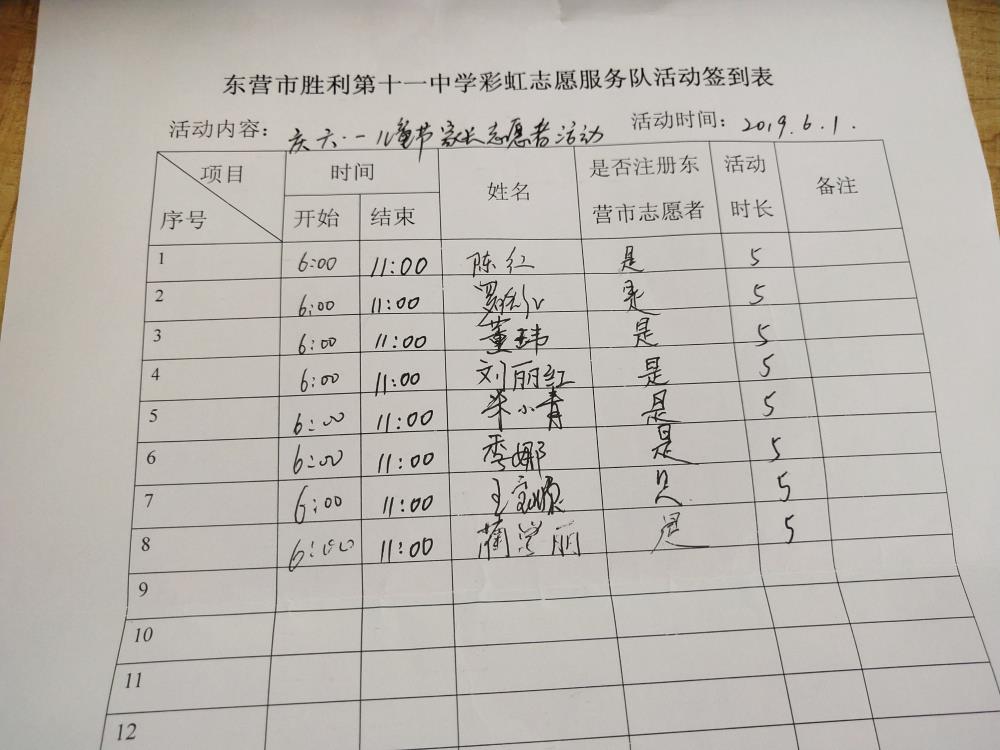 东营市胜利第十一中学彩虹志愿服务队活动签到表
活动内容：庆六·一儿童节家长志愿者活动 活动时间：2019.6.1.
项目 时间 姓名 是否注册东 活动 备注
序号 开始 结束 营市志愿者 时长
1 6:00 11:00 陈红 是 5
2 6:00 11:00 是 5
3 6:00 11:00 董玮 是 5
4 6:00 11:00 刘丽红 是 5
5 6:00 11:00 小青 是 5
6 6:00 11:00 季娜 是 5
7 6:00 11:00 王 是 5
8 6:00 11:00 蔺 丽 是 5
9
10
11
12